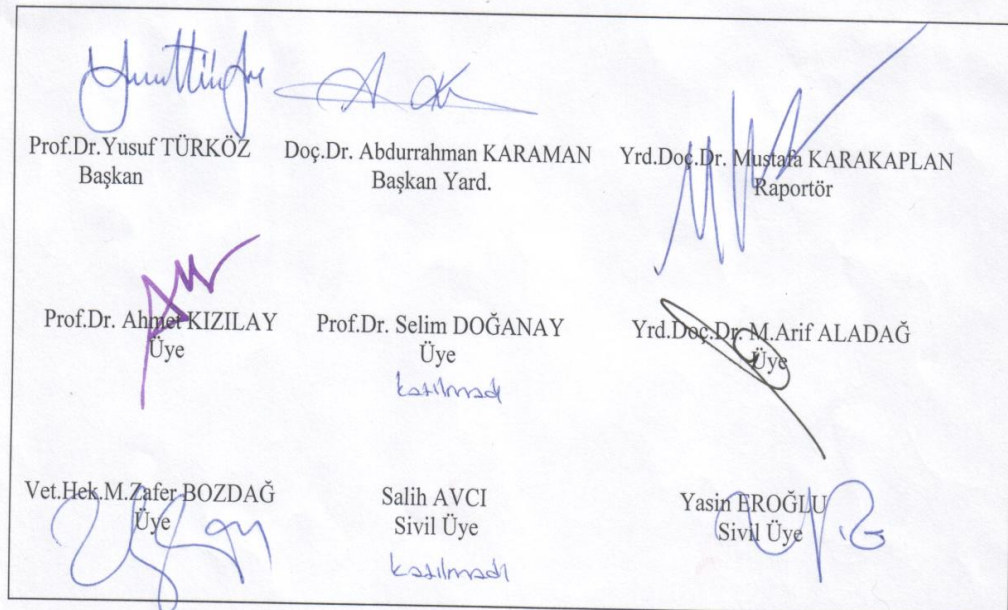 Prof.Dr.Yusuf TÜRKÖZ
Başkan
Doç.Dr. Abdurrahman KARAMAN
Başkan Yard.
Yrd.Doç.Dr. Mustafa KARAKAPLAN
Raportör
Prof.Dr. Ahmet KIZILAY
Üye
Prof.Dr. Selim DOĞANAY
Üye
katılmadı
Yrd.Doç.Dr. M.Arif ALADAĞ
Üye
Vet.Hek.M.Zafer BOZDAĞ
Üye
Salih AVCI
Sivil Üye
katılmadı
Yasin EROĞLU
Sivil Üye